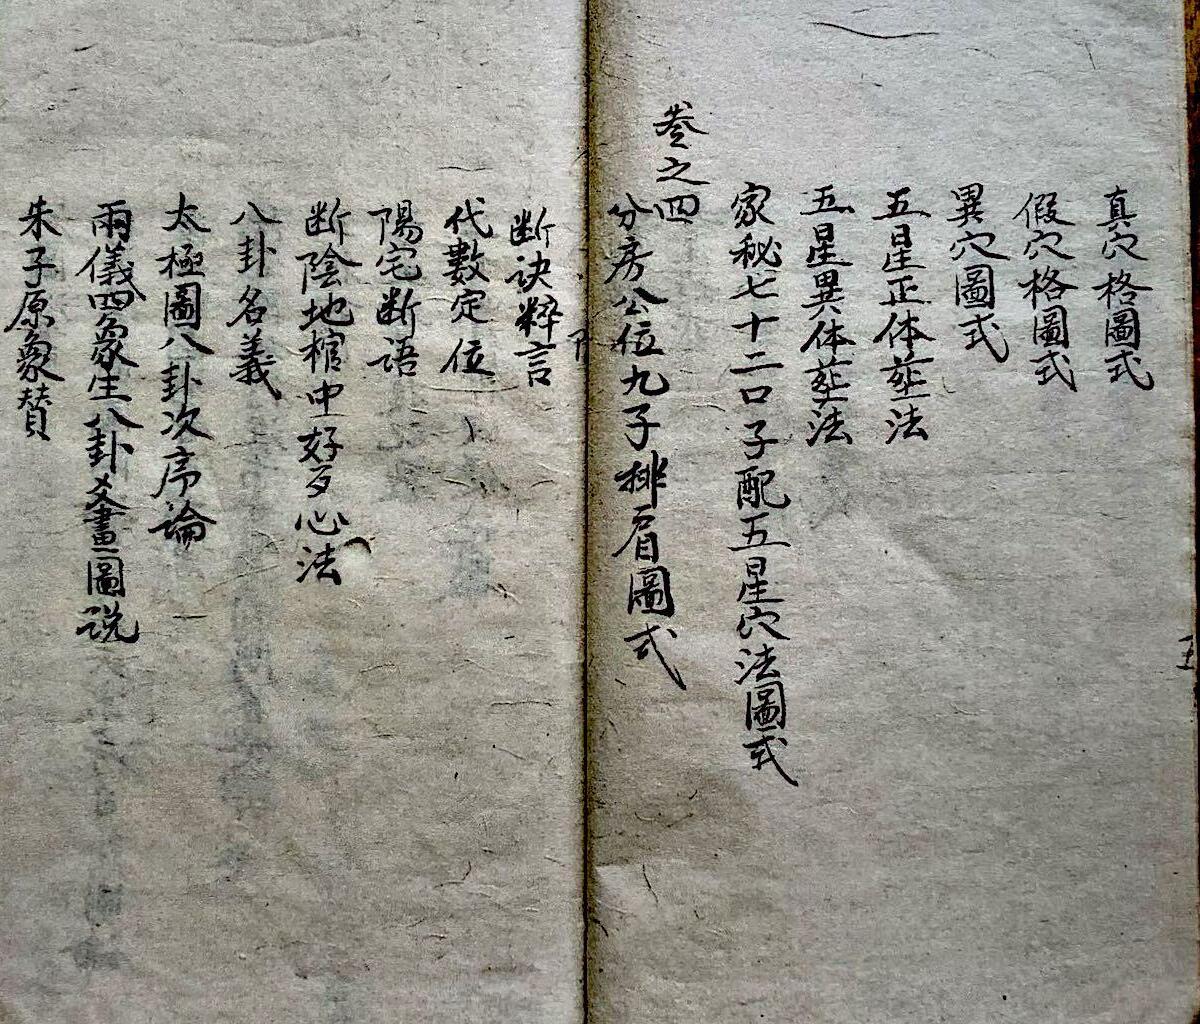 真穴格圖式
假穴格圖式
異穴圖式
五星正体塟法
五星異体塟法
家秘七十二口子配五星穴法圖式
卷之四
分房公位九子排眉圖式
断訣粹言
代數定位
陽宅断語
断陰地棺中好歹心法
八卦名義
太極圖八卦次序論
兩儀四象生八卦爻畫圖説
朱子原象賛